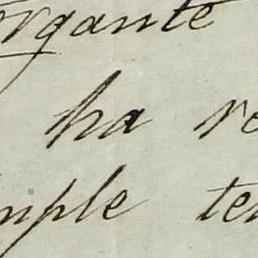 ergante
ha re
mple te